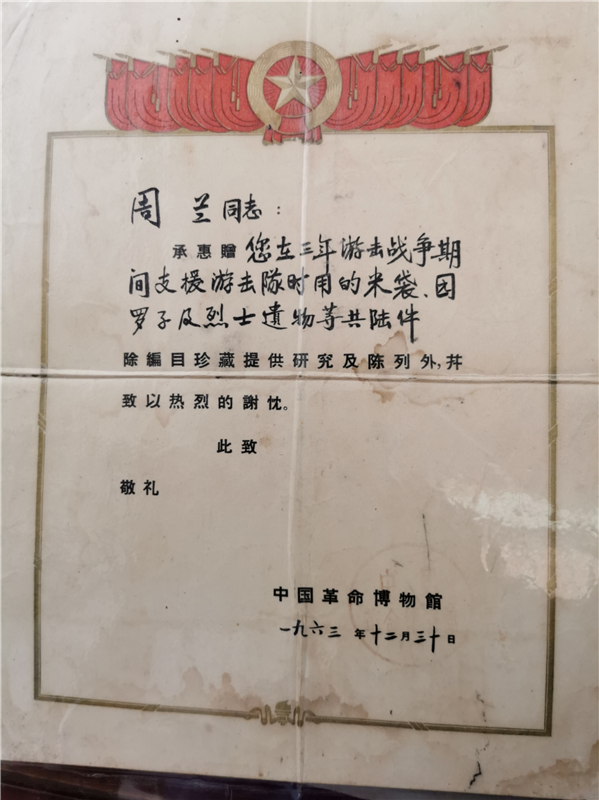 周兰同志：
承惠贈您在三年游击战争期
间支援游击隊时用的米袋、团
罗子及烈士遺物等共陆件
除編目珍藏提供研究及陈列外，幷
致以热烈的謝忱。
此致
敬礼
中国革命博物館
一九六三年十二月三十日